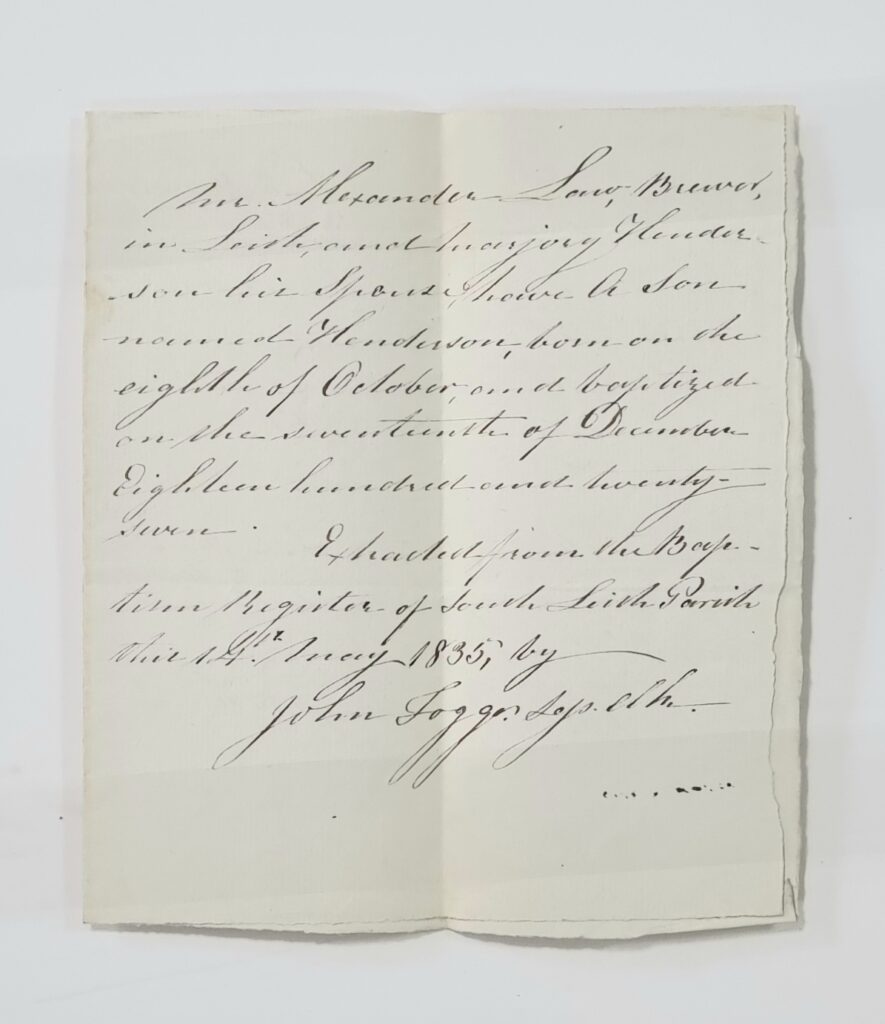 Mr. Alexander Law, Brewer,
in Leith, and Marjory Hender-
son his Spouse, have A Son
named Henderson, born on the
eighth of October, and baptized
on the seventeenth of December
Eighteen hundred and twenty-
seven.
Extracted from the Bap-
tism Register of South Leith Parish
this 14th. May 1835, by
John